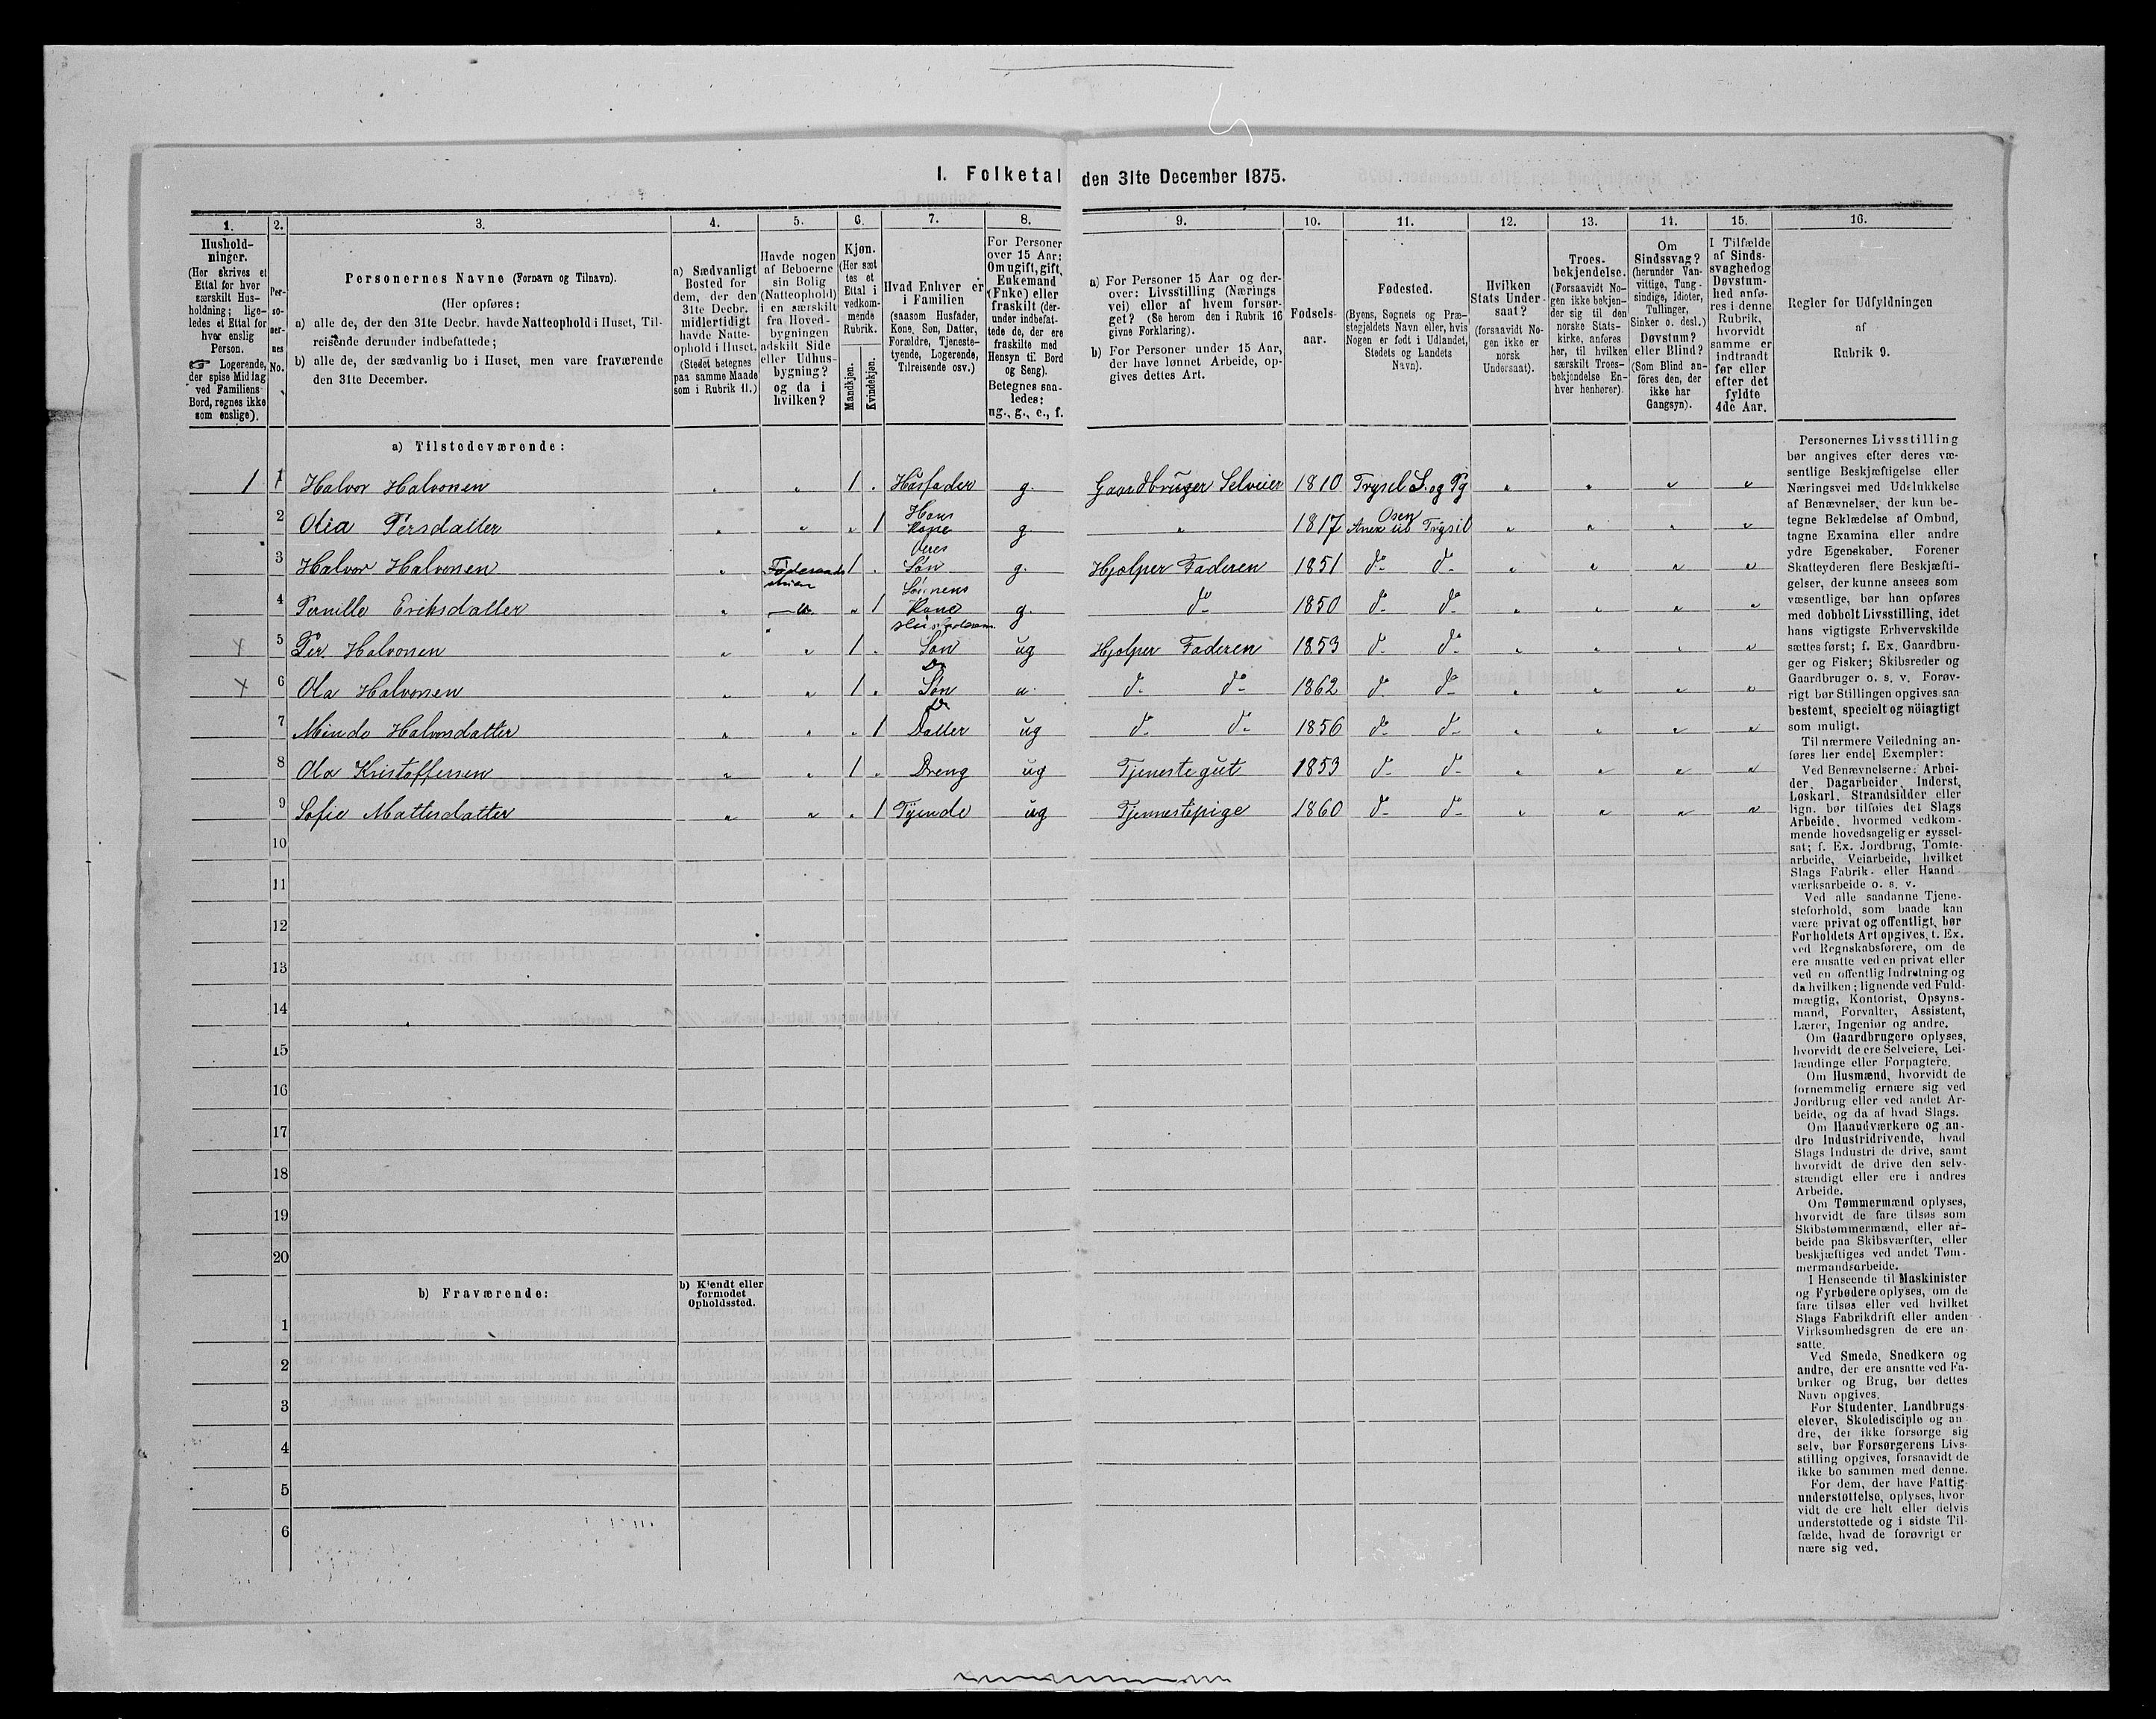 I. Folketal den 31te December 1875.
1.
Hushold-
ninger.
(Her skrives et
Ettal for hver
særskilt Hus-
holdning; lige-
ledes et Ettal for
hver enslig
Person.
☞ Logerende,
der spise Middag
ved Familiens
Bord, regnes ikke
som enslige).
2.
Per-
so-
ner-
nes
No.
3.
Personernes Navne (Fornavn og Tilnavn).
(Her opføres:
a) alle de, der den 31te Decbr. havde Natteophold i Huset, Til-
reisende derunder indbefattede;
b) alle de, der sædvanlig bo i Huset, men vare fraværende
den 31te December.
4.
a) Sædvanligt
Bosted for
dem, der den
31te Decbr.
midlertidigt
havde Natte-
ophold i Huset.
(Stedet betegnes
paa samme Maade
som i Rubrik 11.)
5.
Havde nogen
af Beboerne
sin Bolig
(Natteophold)
i en særskilt
fra Hoved-
bygningen
adskilt Side
eller Udhus-
bygning?
og da i
hvilken?
6.
Kjøn.
(Her sæt
tes et
Ettal i
vedkom-
mende
Rubrik.
Mandkjøn.
Kvindekjøn.
7.
Hvad Enhver er
i Familien
(saasom Husfader,
Kone, Søn, Datter,
Forældre, Tjeneste-
tyende, Logerende,
Tilreisende osv.)
8.
For Personer
over 15 Aar:
Om ugift, gift,
Enkemand
(Enke) eller
fraskilt (der-
under indbefat-
tede de, der ere
fraskilte med
Hensyn til Bord
og Seng).
Betegnes saa-
ledes:
ug., g., e., f.
9.
a) For Personer 15 Aar og der-
over: Livsstilling (Nærings
vei) eller af hvem forsør-
get? (Se herom den i Rubrik 16
givne Forklaring).
b) For Personer under 15 Aar,
der have lønnet Arbeide, op-
gives dettes Art.
10.
Fødsels-
aar.
11.
Fødested.
(Byens, Sognets og Præ-
stegjeldets Navn eller, hvis
Nogen er født i Udlandet,
Stedets og Landets
Navn).
12.
Hvilken
Stats Under-
saat?
(forsaavidt No-
gen ikke er
norsk
Undersaat).
13.
Troes-
bekjendelse.
(Forsaavidt No-
gen ikke bekjen-
der sig til den
norske Stats-
kirke, anføres
her, til hvilken
særskilt Troes-
bekjendelse En-
hver henhører).
14.
Om
Sindssvag?
(herunder Van-
vittige, Tung-
sindige, Idioter,
Tullinger,
Sinker o. desl.)
Døvstum?
eller Blind?
(Som Blind an-
föres den, der
ikke har
Gangsyn).
15.
I Tilfælde
af Sinds-
svaghed og
Døvstum-
hed anfø-
res i denne
Rubrik,
hvorvidt
samme er
indtraadt
før eller
efter det
fyldte
4de Aar.
16.
Regler for Udfyldningen
af
Rubrik 9.
a) Tilstedeværende:
1 1 Halvor Halvorsen " " 1 . Husfader g. Gaardbruger Selveier 1810 Trysil S. og Pg " " " "
2 Olia Persdatter " " " 1 Hans Kone g " 1817 Osen Anex til Trysil " " " "
3 Halvor Halvorsen " Føderaads 1 . Deres Søn g. Hjælper Faderen 1851 do do " " " "
4 Pernille Eriksdatter " " " 1 Sønnens Kone g. do 1850 do do " " " "
x 5 Per Halvorsen " " 1 . Husfaderens Søn ug Hjælper Faderen 1853 do do " " " "
x 6 Ola Halvorsen " " 1 . Do Søn u. do do 1862 do do " " " "
7 Minde Halvorsdatter " " " 1 Do Datter ug do do 1856 do do " " " "
8 Ola Kristoffersen " " 1 . Dreng ug Tjenestegut 1853 do do " " " "
9 Sofie Mattesdatter " " " 1 Tjende ug Tjennestepige 1860 do do " " " "
10
11
12
13
14
15
16
17
18
19
20
b) Fraværende:
b) Kjendt eller
formodet
Opholdssted.
1
2
3
4
5
6
Personernes Livsstilling
bør angives efter deres væ-
sentlige Beskjæftigelse eller
Næringsvei med Udelukkelse
af Benævnelser, der kun be-
tegne Beklædelse af Ombud,
tagne Examina eller andre
ydre Egenskaber. Forener
Skatteyderen flere Beskjæfti-
gelser, der kunne ansees som
væsentlige, bør han opføres
med dobbelt Livsstilling, idet
hans vigtigste Erhvervskilde
sættes først; f. Ex. Gaardbru-
ger og Fisker; Skibsreder og
Gaardbruger o. s. v. Forøv-
rigt bør Stillingen opgives saa
bestemt, specielt og nöiagtigt
som muligt.
Til nærmere Veiledning an-
føres her endel Exempler:
Ved Benævnelserne: Arbei-
der, Dagarbeider, Inderst,
Løskarl, Strandsidder eller
lign. bør tilføies det Slags
Arbeide, hvormed vedkom-
mende hovedsagelig er syssel-
sat; f. Ex. Jordbrug, Tomte-
arbeide, Veiarbeide, hvilket
Slags Fabrik- eller Haand-
værksarbeide o. s. v.
Ved alle saadanne Tjene-
steforhold, som baade kan
være privat og offentligt, bør
Forholdets Art opgives, t. Ex.
ved Regnskabsførere, om de
ere ansatte ved en privat eller
ved en offentlig Indretning og
da hvilken; lignende ved Fuld-
mægtig, Kontorist, Opsyns-
mand, Forvalter, Assistent,
Lærer, Ingeniør og andre.
Om Gaardbrugere oplyses,
hvorvidt de ere Selveiere, Lei-
lændinge eller Forpagtere.
Om Husmænd, hvorvidt de
fornemmelig ernære sig ved
Jordbrug eller ved andet Ar-
beide, og da af hvad Slags.
Om Haandværkere og an-
dre Industridrivende, hvad
Slags Industri de drive, samt
hvorvidt de drive den selv-
stændigt eller ere i andres
Arbeide.
Om Tømmermænd oplyses,
hvorvidt de fare tilsøs som
Skibstømmermænd, eller ar-
beide paa Skibsværfter, eller
beskjæftiges ved andet Tøm-
mermandsarbeide.
I Henseende til Maskinister
og Fyrbødere oplyses, om de
fare tilsøs eller ved hvilket
Slags Fabrikdrift eller anden
Virksomhedsgren de ere an-
satte.
Ved Smede, Snedkere og
andre, der ere ansatte ved Fa-
briker og Brug, bør dettes
Navn opgives.
For Studenter, Landbrugs-
elever, Skoledisciple og an-
dre, der ikke forsørge sig
selv, bør Forsørgerens Livs-
stilling opgives, forsaavidt de
ikke bo sammen med denne.
For dem, der have Fattig-
understøttelse, oplyses, hvor-
vidt de ere helt eller delvis
understøttede og i sidste Til-
fælde, hvad de forøvrigt er
nære sig ved.